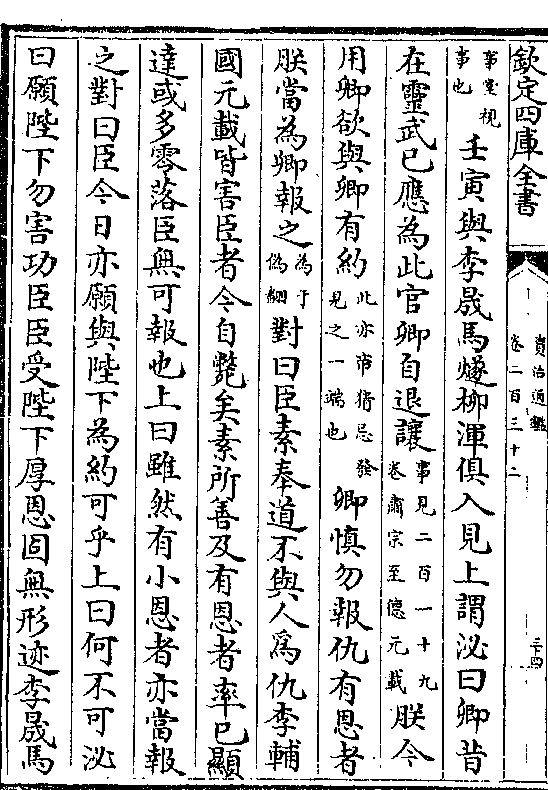 欽定四庫全書
資治通鑑
卷二百三十二
三十四
事堂視事也壬寅與李晟馬燧柳渾俱入見上謂泌曰卿昔
在靈武已應為此官卿自退讓事見二百一十九卷肅宗至德元載朕今
用卿欲與卿有約此亦帝猜忌發見之一端也卿慎勿報仇有恩者
朕當為卿報之為于偽翻對曰臣素奉道不與人為仇李輔
國元載皆害臣者今自斃矣素所善及有恩者率已顯
達或多零落臣無可報也上曰雖然有小恩者亦當報
之對曰臣今日亦願與陛下為約可乎上曰何不可泌
曰願陛下勿害功臣臣受陛下厚恩固無形迹李晟馬